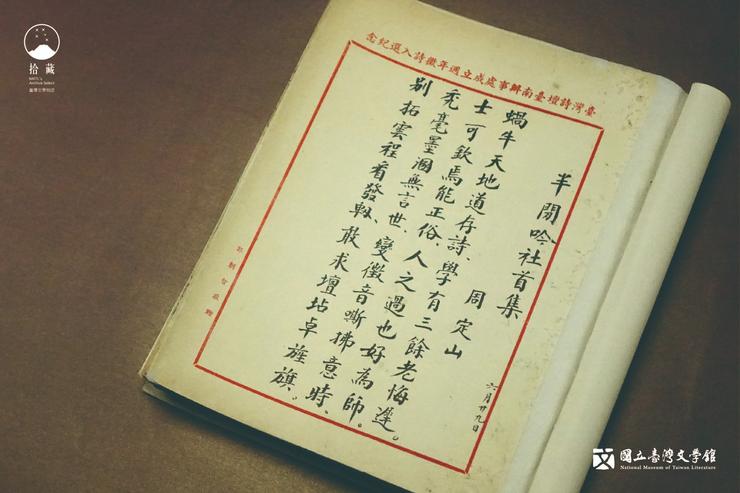 拾藏
NMTL's
Archive Select
臺灣文學物語
臺灣詩壇臺南辦事處成立週年徵詩入選紀念
半閒吟社首集
周定山 六月廿九日
蝸牛天地道存詩、學有三餘老悔遲。
士可欽焉能正俗、人之過也好為師。
禿毫墨涸無言世、變徵音嘶拂意時、
別拓雲程看發軔、敢求壇坫卓旌旗。
國立臺灣文學館
National Museum of Taiwan Literature